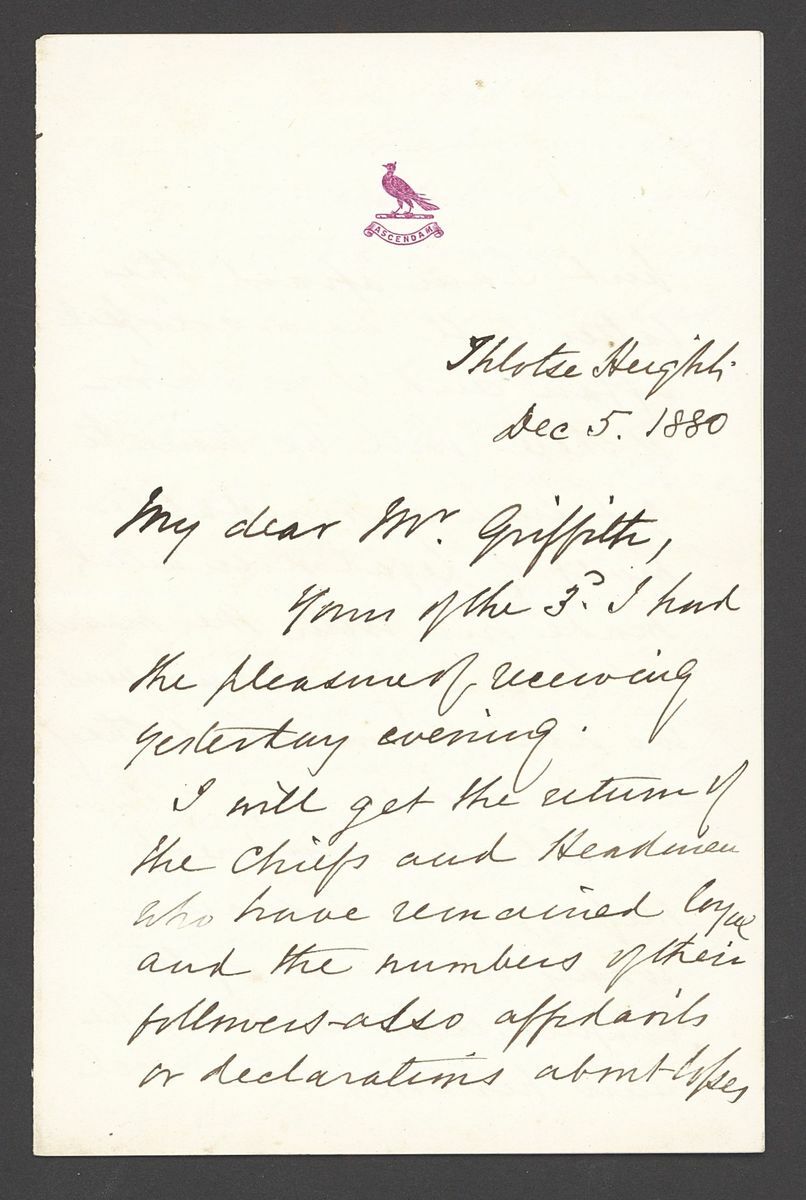 ASCENDAM
Thlotse Heights
Dec 5. 1880
My dear Mr. Griffith,
Yours of the 3d. I had
the pleasure of receiving
yesterday evening.
I will get the return of
the Chiefs and Headmen
who have remained loyal
and the numbers of their
followers - also affidavits
or declarations about losses